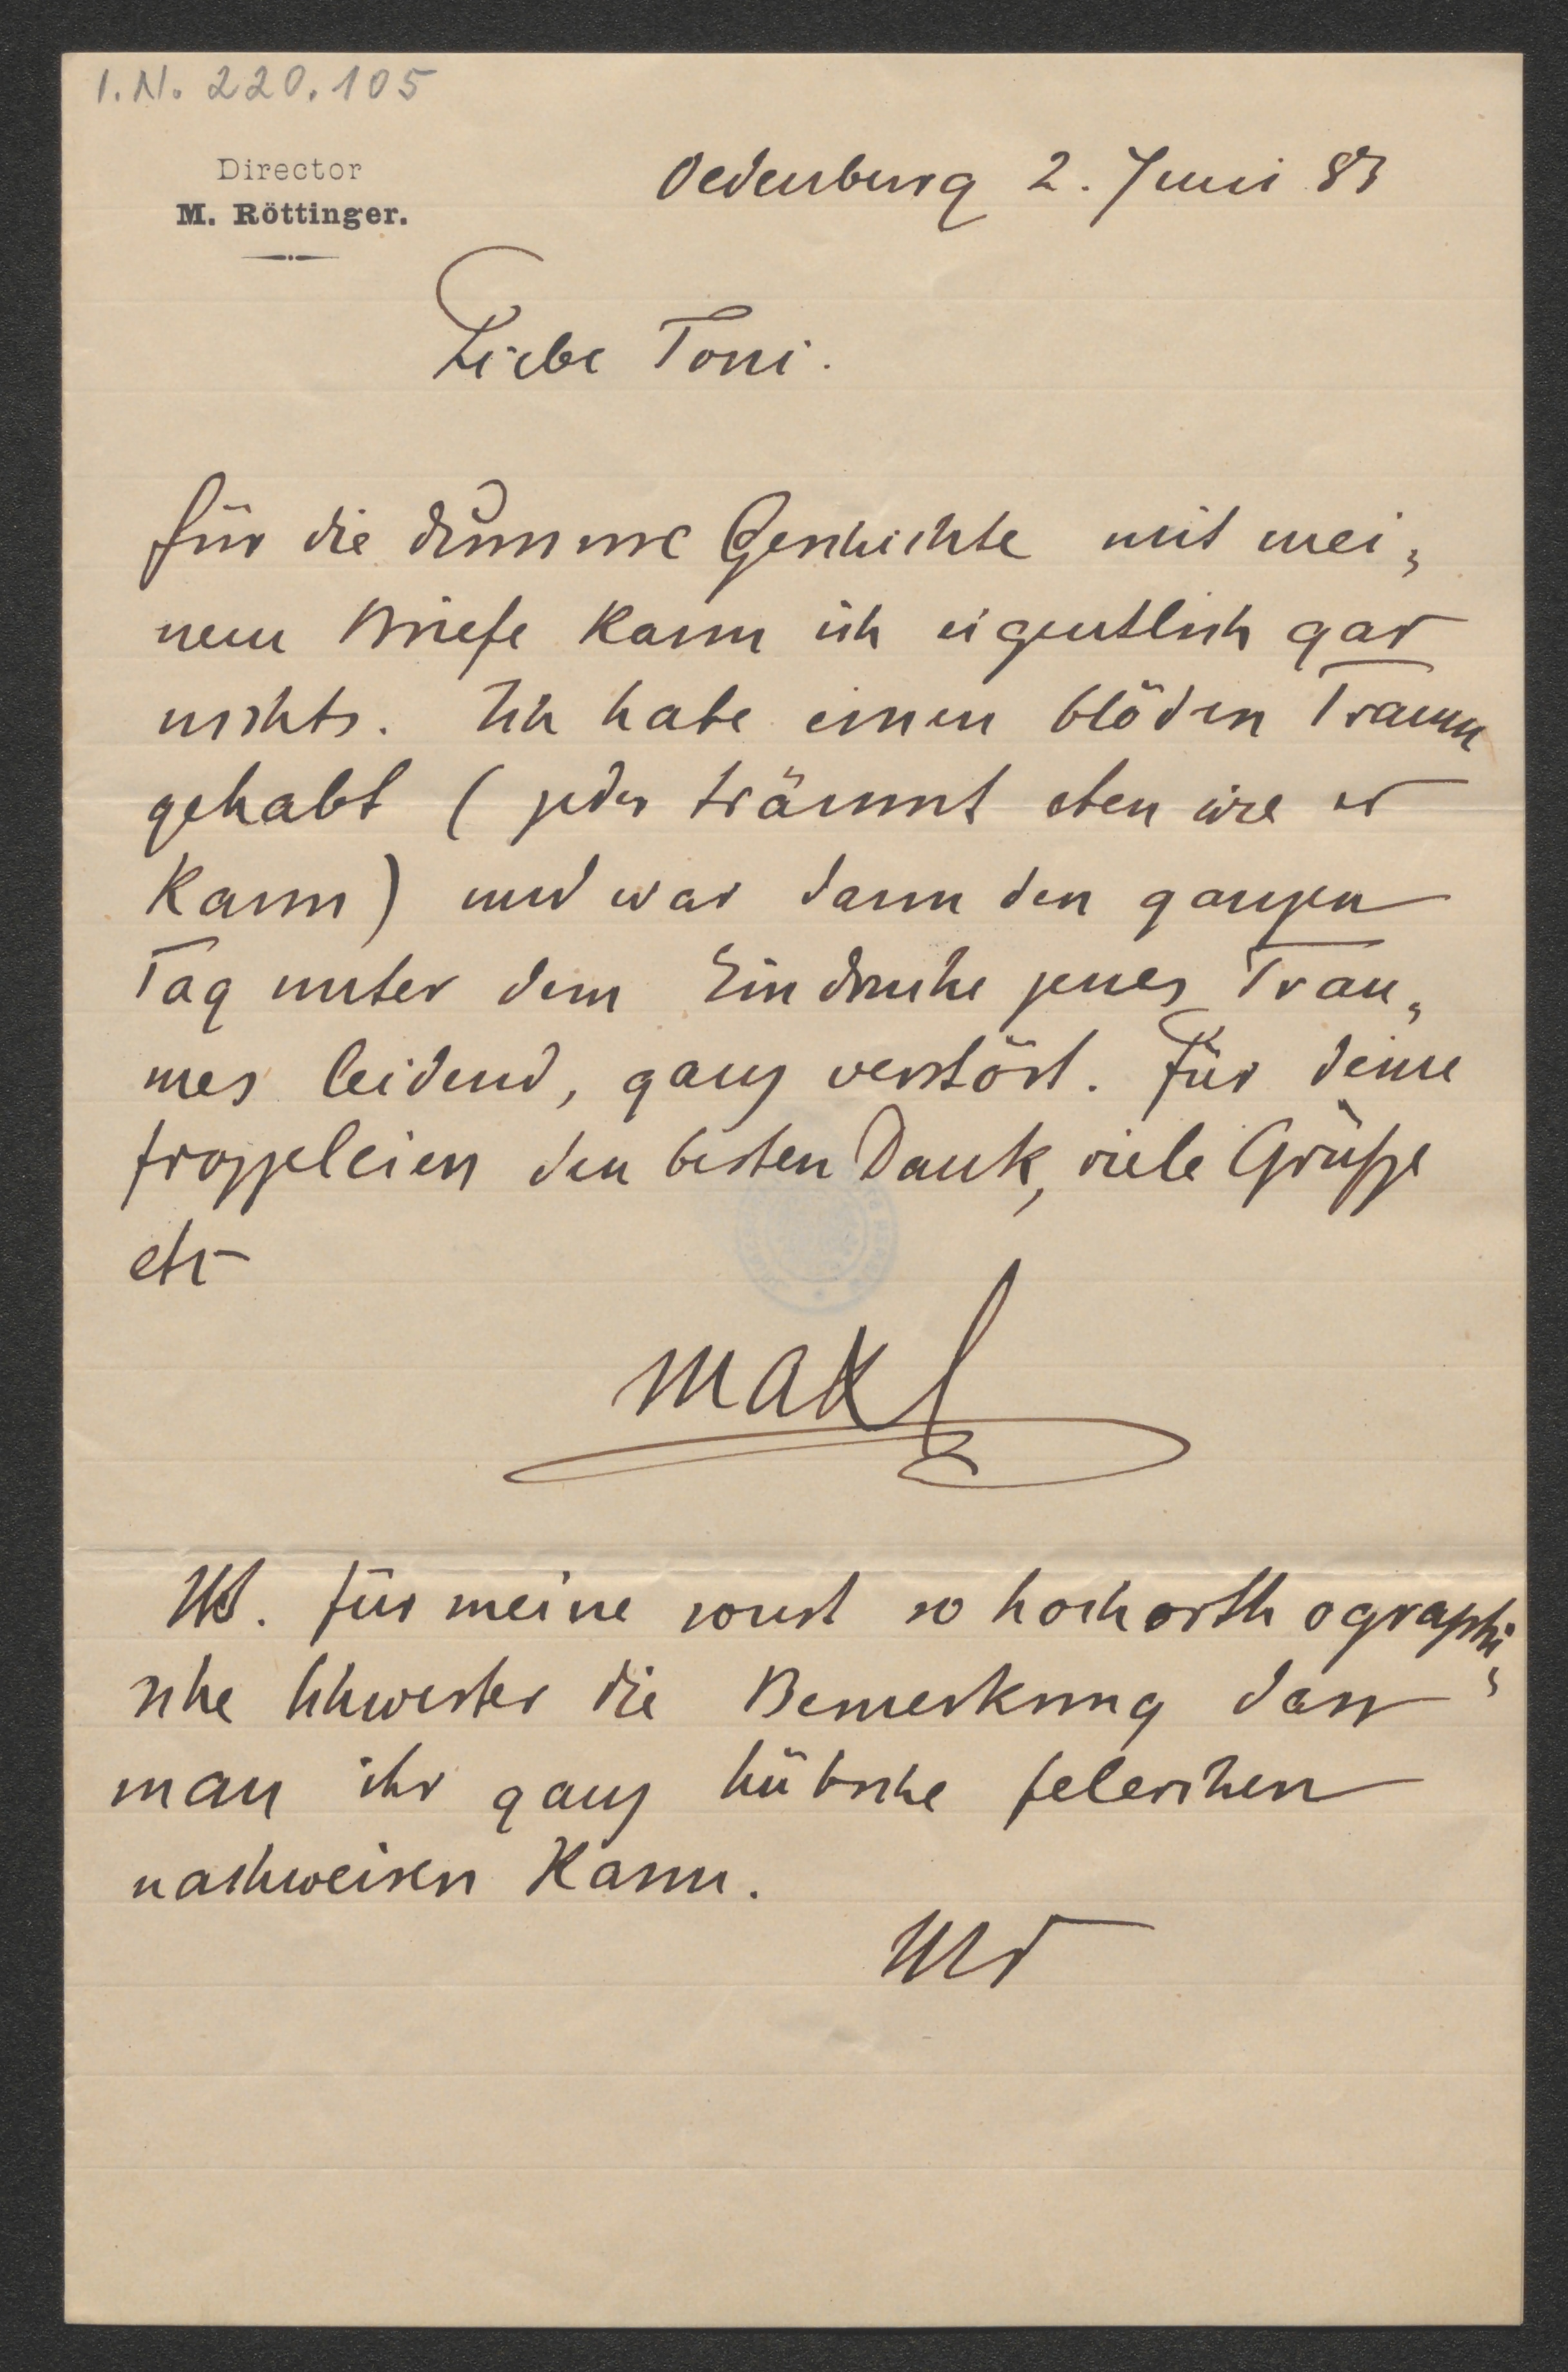 I.N. 220.105
Director
M. Röttinger.
Oedenburg 2. Juni 83
Liebe Toni.
für die dumme Geschichte mit mei=
nem Briefe kann ich eigentlich gar
nichts. Ich habe einen blöden Traum
gehabt (jeder träumt eben wie er
kann) und war dann den ganzen
Tag unter dem Eindrucke jenes Trau=
mes leidend, ganz verstört. Für deine
froppeleien den besten Dank, viele Grüße
etc
Max
NB. für meine sonst so hochorthographi=
sche Schwester die Bemerkung dass
man ihr ganz hübsche felerchen
nachweisen kann.